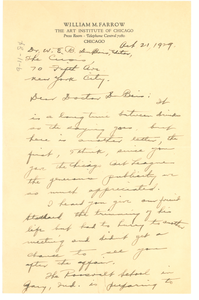 WILLIAM M. FARROW
THE ART INSTITUTE OF CHICAGO
CHICAGO
Oct 21, 1929
Dr. W. E. B. Du Bois, Editor,
The Crisis
70 Fifth Ave
New York City.
Dear Doctor Du Bois: It
is a long time between drinks
as the saying goes but
here is another letter, the
first, I think, since you
gave the Chicago Art League
the generous publicity
so much appreciated.
I heard you give our friend
Stoddard the trimming of his
life but had to hurry to another
meeting and didn't get a
chance to see you
after the affair.
The Roosevelt School in
Gary, Ind. is preparing to